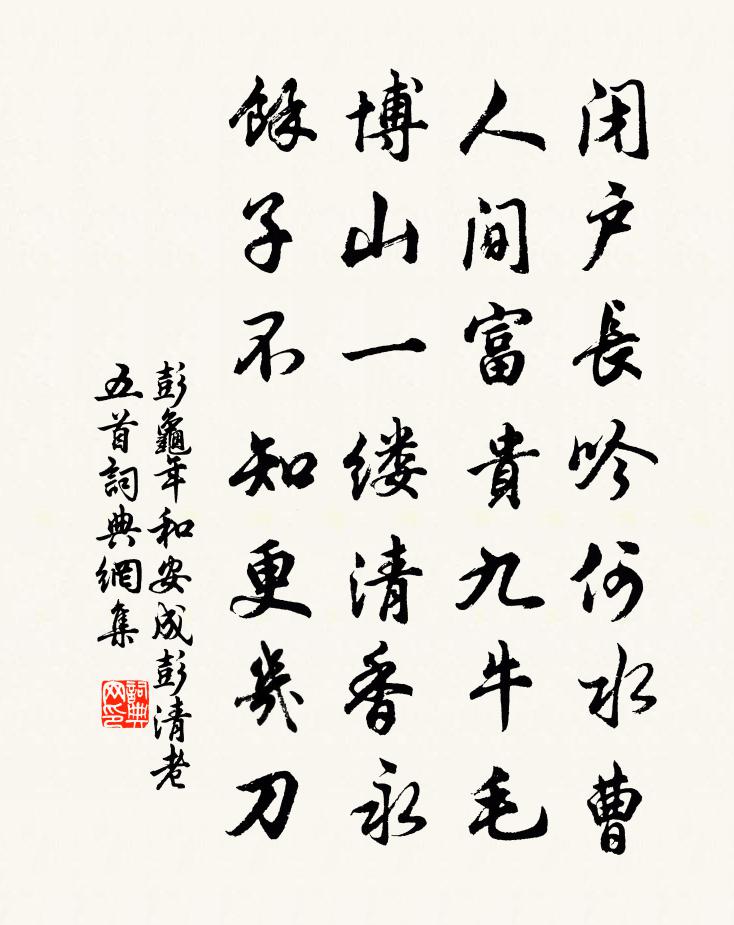 闭户長吟何水曹
人间富貴九牛毛
博山一缕清香永
餘子不知更幾刀
彭龜年和安成彭清老
五首詞典網集
詞典网印